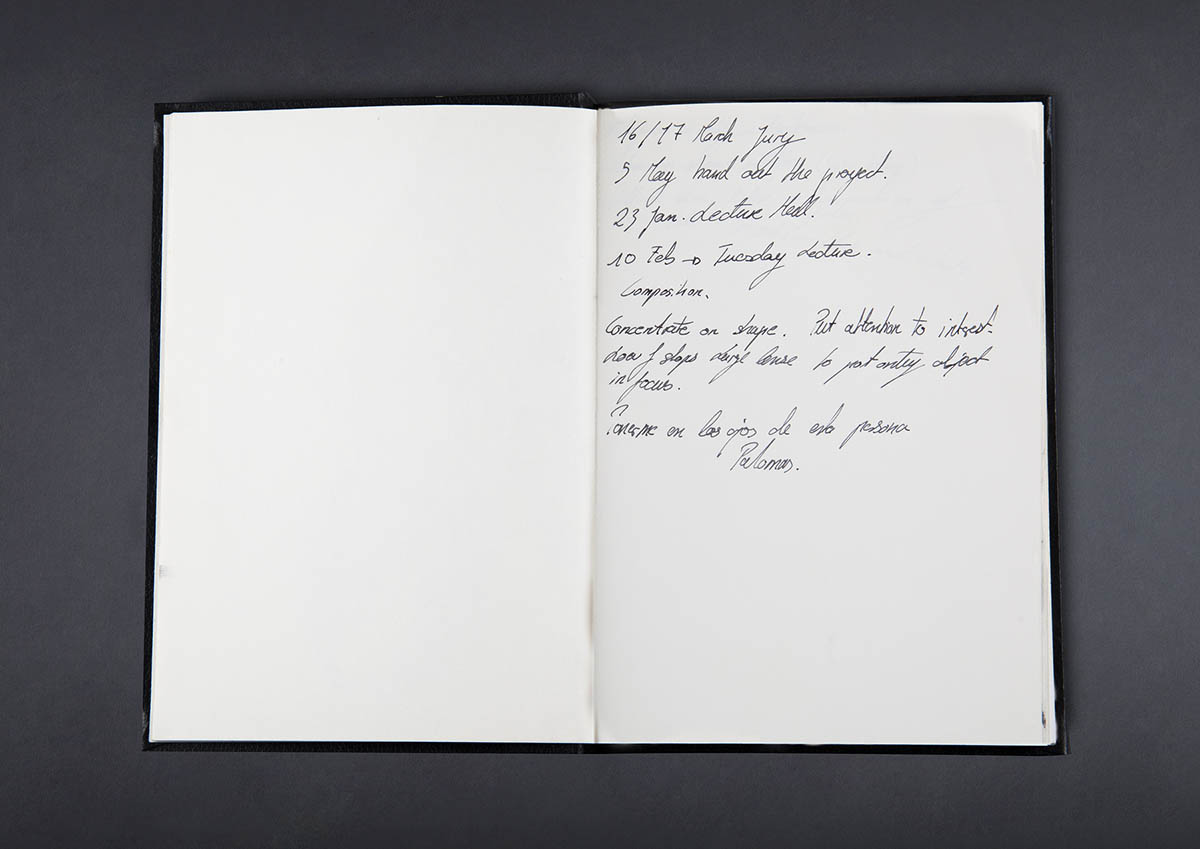 16/17 March Jury
5 May hand out the project.
23 Jan. Lecture Hall.
10 Feb → Tuesday Lecture.
Composition.
Concentrate on shape. Put attention to
Low f stops large lense to put object
in focus.
Ponerme en los ojos de esta persona
Palomas.